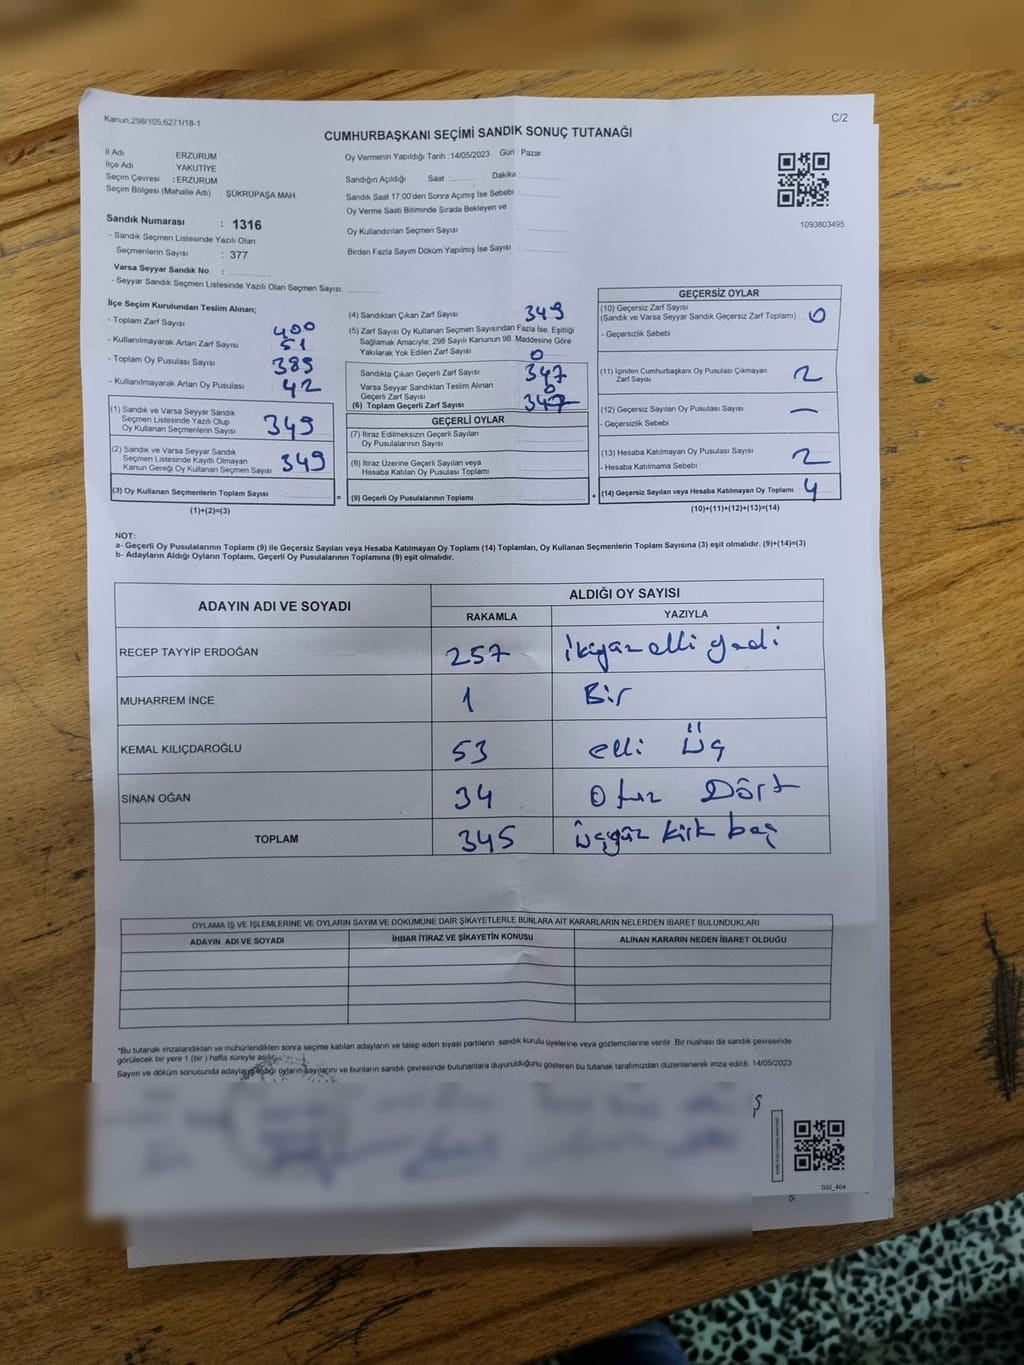 Kanun;298/105,6271/18-1
C/2
CUMHURBAŞKANI SEÇİMİ SANDIK SONUÇ TUTANAĞI
İl Adı : ERZURUM
İlçe Adı : YAKUTİYE
Seçim Çevresi : ERZURUM
Seçim Bölgesi (Mahalle Adı) : ŞÜKRÜPAŞA MAH.
Oy Vermenin Yapıldığı Tarih :14/05/2023 Gün : Pazar
Sandığın Açıldığı Saat : Dakika :
Sandık Saat 17:00'den Sonra Açımış İse Sebebi :
Oy Verme Saati Bitiminde Sırada Bekleyen ve
Oy Kullandırılan Seçmen Sayısı :
Birden Fazla Sayım Döküm Yapılmış İse Sayısı :
1093803495
Sandık Numarası : 1316
- Sandık Seçmen Listesinde Yazılı Olan
Seçmenlerin Sayısı : 377
Varsa Seyyar Sandık No :
- Seyyar Sandık Seçmen Listesinde Yazılı Olan Seçmen Sayısı:
İlçe Seçim Kurulundan Teslim Alınan;
- Toplam Zarf Sayısı 400
- Kullanılmayarak Artan Zarf Sayısı 51
- Toplam Oy Pusulası Sayısı 389
- Kullanılmayarak Artan Oy Pusulası 42
(1) Sandık ve Varsa Seyyar Sandık
Seçmen Listesinde Yazılı Olup
Oy Kullanan Seçmenlerin Sayısı 349
(2) Sandık ve Varsa Seyyar Sandık
Seçmen Listesinde Kayıtlı Olmayan
Kanun Gereği Oy Kullanan Seçmen Sayısı 349
(3) Oy Kullanan Seçmenlerin Toplam Sayısı :
(1)+(2)=(3)
=
(4) Sandıktan Çıkan Zarf Sayısı 349
(5) Zarf Sayısı Oy Kullanan Seçmen Sayısından Fazla İse, Eşitliği
Sağlamak Amacıyla; 298 Sayılı Kanunun 98. Maddesine Göre
Yakılarak Yok Edilen Zarf Sayısı 0
Sandıkta Çıkan Geçerli Zarf Sayısı 347
Varsa Seyyar Sandıktan Teslim Alınan
Geçerli Zarf Sayısı 0
(6) Toplam Geçerli Zarf Sayısı 347
GEÇERLİ OYLAR
(7) İtiraz Edilmeksizin Geçerli Sayılan
Oy Pusulalarının Sayısı :
(8) İtiraz Üzerine Geçerli Sayılan veya
Hesaba Katılan Oy Pusulası Toplamı :
(9) Geçerli Oy Pusulalarının Toplamı :
+
GEÇERSİZ OYLAR
(10) Geçersiz Zarf Sayısı
(Sandık ve Varsa Seyyar Sandık Geçersiz Zarf Toplamı) : 0
- Geçersizlik Sebebi :
(11) İçinden Cumhurbaşkanı Oy Pusulası Çıkmayan
Zarf Sayısı 2
(12) Geçersiz Sayılan Oy Pusulası Sayısı : —
- Geçersizlik Sebebi :
(13) Hesaba Katılmayan Oy Pusulası Sayısı : 2
- Hesaba Katılmama Sebebi :
(14) Geçersiz Sayılan veya Hesaba Katılmayan Oy Toplamı : 4
(10)+(11)+(12)+(13)=(14)
NOT:
a- Geçerli Oy Pusulalarının Toplamı (9) ile Geçersiz Sayılan veya Hesaba Katılmayan Oy Toplamı (14) Toplamları, Oy Kullanan Seçmenlerin Toplam Sayısına (3) eşit olmalıdır. (9)+(14)=(3)
b- Adayların Aldığı Oyların Toplamı, Geçerli Oy Pusulalarının Toplamına (9) eşit olmalıdır.
ADAYIN ADI VE SOYADI ALDIĞI OY SAYISI
RAKAMLA YAZIYLA
RECEP TAYYİP ERDOĞAN 257 ikiyüz elli yedi
MUHARREM İNCE 1 Bir
KEMAL KILIÇDAROĞLU 53 elli üç
SİNAN OĞAN 34 Otuz Dört
TOPLAM 345 üçyüz kırk beş
OYLAMA İŞ VE İŞLEMLERİNE VE OYLARIN SAYIM VE DÖKÜMÜNE DAİR ŞİKAYETLERLE BUNLARA AİT KARARLARIN NELERDEN İBARET BULUNDUKLARI
ADAYIN ADI VE SOYADI İHBAR İTİRAZ VE ŞİKAYETİN KONUSU ALINAN KARARIN NEDEN İBARET OLDUĞU
*Bu tutanak imzalandıktan ve mühürlendikten sonra seçime katılan adayların ve talep eden siyasi partilerin sandık kurulu üyelerine veya gözlemcilerine verilir. Bir nüshası da sandık çevresinde
görülecek bir yere 1 (bir ) hafta süreyle asılır.
Sayım ve döküm sonucunda adayların aldığı oyların sayılarını ve bunların sandık çevresinde bulunanlara duyurulduğunu gösteren bu tutanak tarafımızdan düzenlenerek imza edildi. 14/05/2023
SSI_404